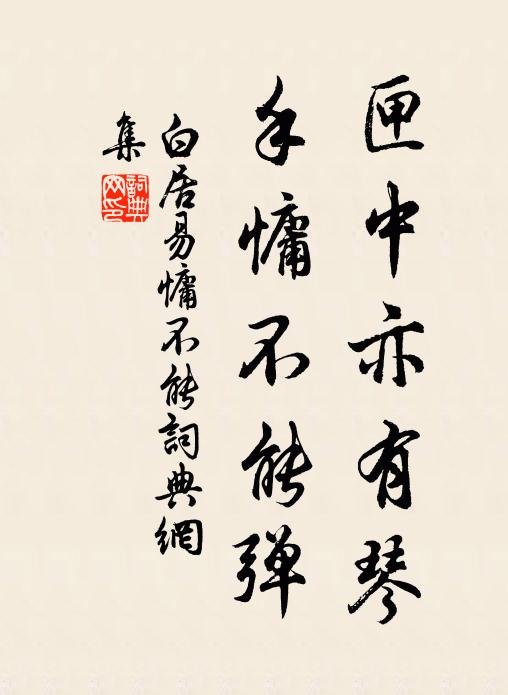 匣中亦有琴
手慵不能弹
白居易慵不能詞典網
集
詞典
网印